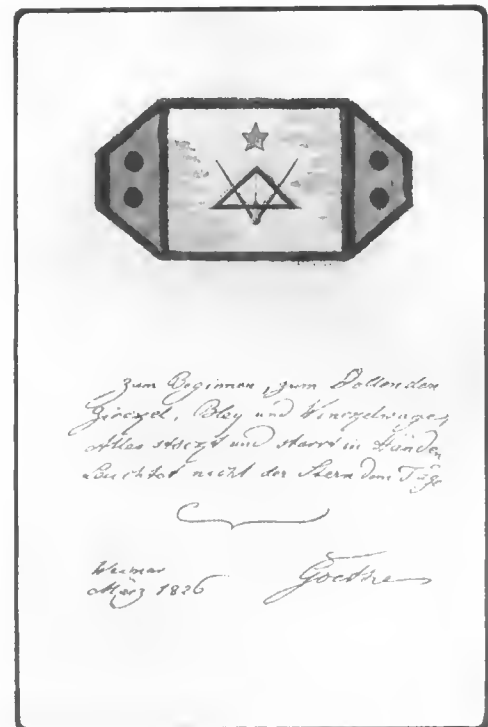 Zum Beginnen, zum Vollenden
Zirckel, Bley und Winckelwage;
Alles stockt und starrt in Händen,
Leuchtet nicht der Stern dem Tage
Weimar
März 1826
Goethe